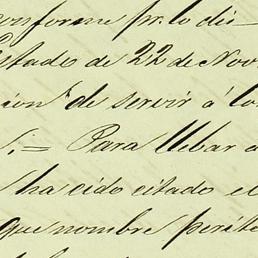 conforme pr. lo dis-
Estado de 22 de Nov
ion.l de servir á lo
s,= Para llebar a
ha cido citado el
que nombre perito